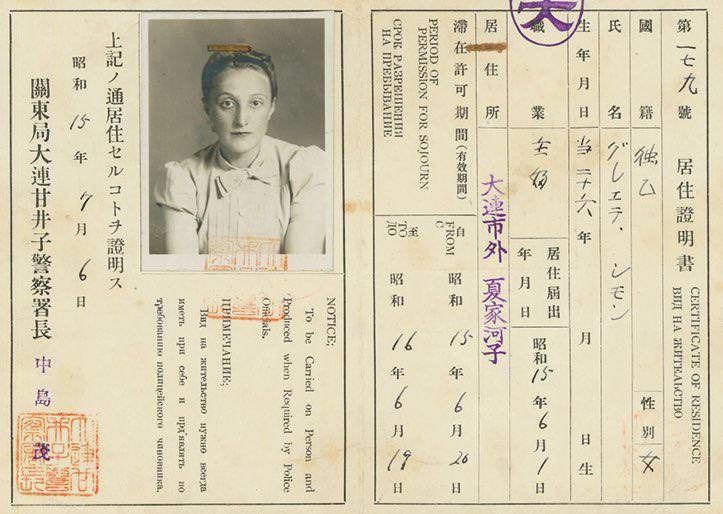 第一七九號
居住證明書
CERTIFICATE OF RESIDENCE
ВИД НА ЖИТЕЛЬСТВО
國籍 独乙
性別 女
氏名 グレエテ、シモン
生年月日 当二十六年 月 日生
職業
居住屆出年月日 昭和15年6月1日
大
居住所 大連市外 夏家河子
滯在許可期間(有效期間)
PERIOD OF
PERMISSION FOR SOJOURN
СРОК РАЗРЕШЕНИЯ
НА ПРЕБЫВАНИЕ
自 FROM С 昭和15年6月20日
至 TO ПО 昭和16年6月19日
NOTICE;
To be Carried on Person and
Produced when Required by Police
Officials.
ПРИМЕЧАНИЕ;
Вид на жительство нужно всегда
иметь при себе и пред'являть по
требованию полицейского чиновника.
上記ノ通居住セルコトヲ證明ス
昭和15年7月6日
關東局大連甘井子警察署長 中島茂